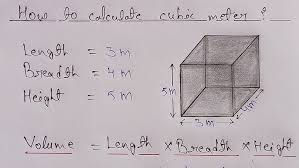 How to calculate cubic meter ?
Length = 3 m
Breadth = 4 m
Height = 5 m
5 m
3 m
4 m
Volume = Length × Breadth × Height